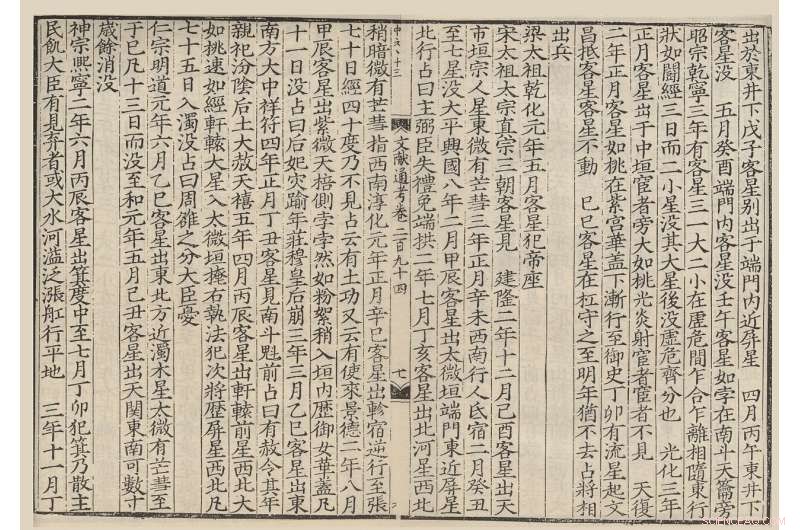 出於東井下戊子客星別出于端門內近屏星　四月丙午東井下
客星沒　五月癸酉端門內客星沒壬午客星如孛在南斗天籥旁
昭宗乾寧三年有客星三一大二小在虛危間乍合乍離相隨東行
狀如鬬經三日而二小星沒其大星後沒虛危齊分也　光化三年
正月客星出于中垣宦者旁大如桃光炎射宦者宦者不見　天復
二年正月客星如桃在紫宮華蓋下漸行至御史丁卯有流星起文
昌抵客星客星不動　己巳客星在杠守之至明年猶不去占將相
出兵
梁太祖乾化元年五月客星犯帝座
宋太祖太宗真宗三朝客星見　建隆二年十二月己酉客星出天
市垣宗人星東微有芒彗三年正月辛未西南行入氐宿二月癸丑
至七星沒大平興國八年二月甲辰客星出太微垣端門東近屏星
北行占曰主弼臣失禮免端拱二年七月丁亥客星出北河星西北
文獻通考卷二百九十四
七
稍暗微有芒彗指西南淳化元年正月辛巳客星出軫宿逆行至張
七十日經四十度乃不見占云有土功又云有使來景德二年八月
甲辰客星出紫微天棓側孛孛然如粉絮稍入垣內歷御女華蓋凡
十一日沒占曰后妃災踰年莊穆皇后崩三年三月乙巳客星出東
南方大中祥符四年正月丁丑客星見南斗魁前占曰有赦令其年
親祀汾陰后土大赦天禧五年四月丙辰客星出軒轅前星西北大
如桃速如經軒轅大星入太微垣掩右執法犯次將歷屏星西北凡
七十五日入濁沒占曰周雒之分大臣憂
仁宗明道元年六月乙巳客星出東北方近濁木星太微有芒彗至
于巳凡十三日而沒至和元年五月己丑客星出天關東南可數寸
嵗餘消沒
神宗熙寧二年六月丙辰客星出箕度中至七月丁卯犯箕乃散主
民飢大臣有見棄者或大水河溢泛漲舡行平地　三年十一月丁
SCIENCEAQ.COM